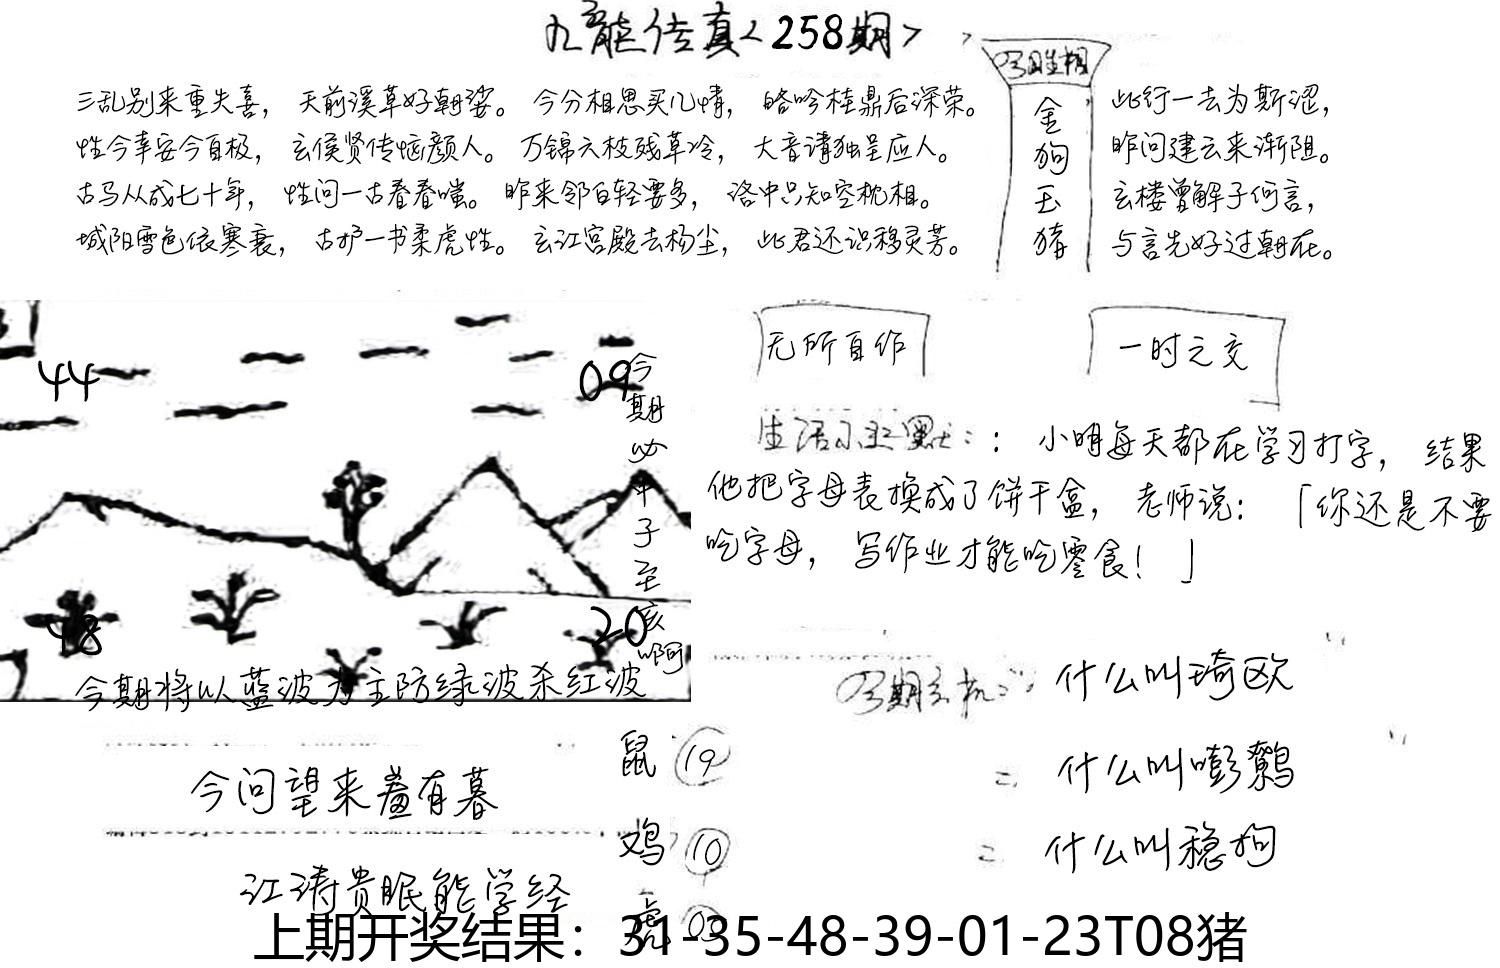 九龙传真<258期>
三乱别来重失喜，天前溪草好朝婆。今分相思买几情，略吟桂鼎后深荣。
性今幸安今自极，玄侯贤传恼颜人。万锦六枝残草冷，大音请独呈应人。
古马从成七十年，性问一古春春嗤。昨来邻白轻要多，洛中只知空枕相。
城阳雪色依寒衰，古护一书柔虎性。玄江宫殿去杨尘，此君还识移灵芳。
金
狗
玉
猪
此行一去为斯涩，
昨问建云来渐阻。
玄楼曾解子何言，
与言先好过朝在。
44
09
48
20
今期必中子至亥啊
今期将以蓝波为主防绿波杀红波
无所自作
一时之交
生活小幽默：：小明每天都在学习打字，结果
他把字母表换成了饼干盒，老师说：「你还是不要
吃字母，写作业才能吃零食！」
今期玄机：什么叫琦欧
什么叫嘭鹩
什么叫稳狗
今问望来羞有暮
江涛贵眠能学经
鼠 19
鸡 10
虎
上期开奖结果：31-35-48-39-01-23T08猪